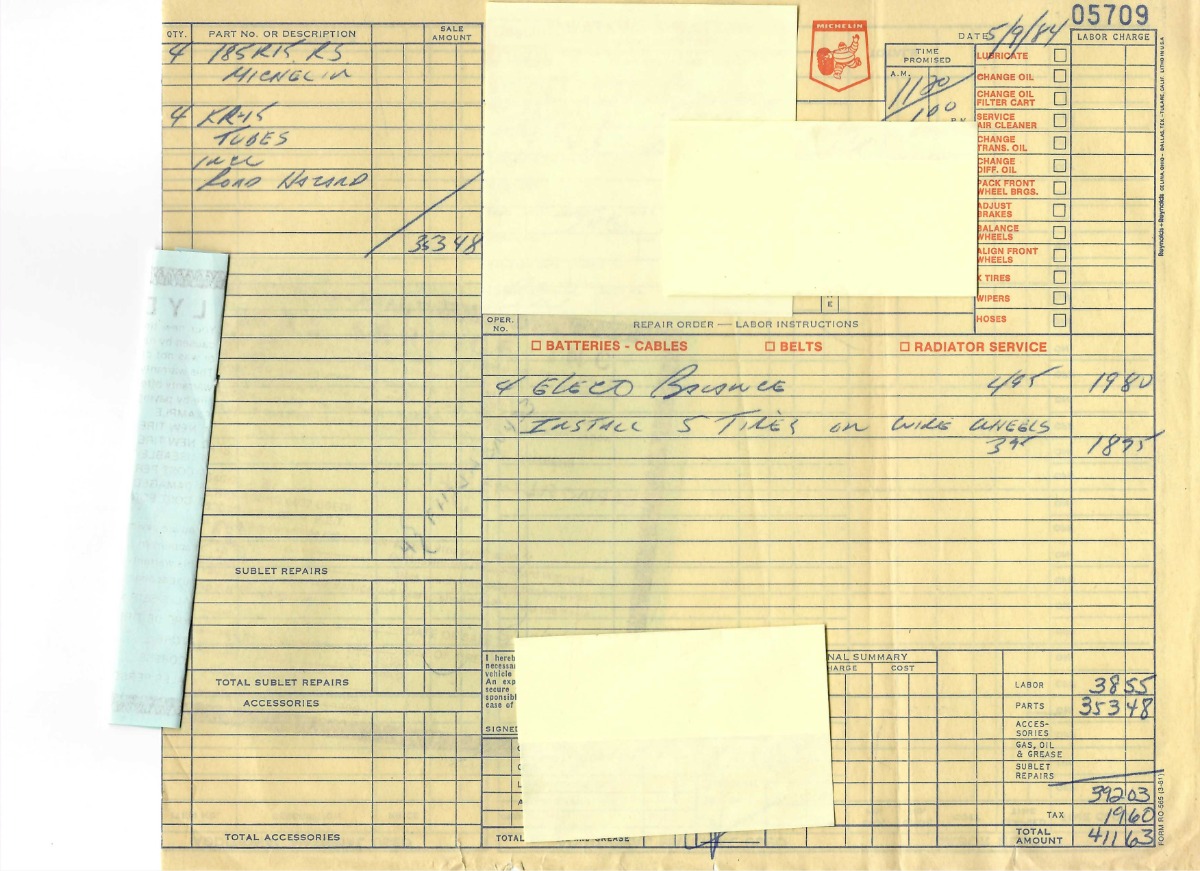 05709
QTY. PART No. OR DESCRIPTION SALE AMOUNT
4 185R15 RS
MICHELIN
4 KR-15
TUBES
INCL
ROAD HAZARD
353 48
SUBLET REPAIRS
TOTAL SUBLET REPAIRS
ACCESSORIES
TOTAL ACCESSORIES
MICHELIN
DATE 5/9/84
TIME PROMISED
A.M.
1100
100
LABOR CHARGE
LUBRICATE
CHANGE OIL
CHANGE OIL FILTER CART
SERVICE AIR CLEANER
CHANGE TRANS. OIL
CHANGE DIFF. OIL
PACK FRONT WHEEL BRGS.
ADJUST BRAKES
BALANCE WHEELS
ALIGN FRONT WHEELS
TIRES
WIPERS
HOSES
OPER. No. REPAIR ORDER — LABOR INSTRUCTIONS
BATTERIES - CABLES BELTS RADIATOR SERVICE
4 ELECO BALANCE 495 1980
INSTALL 5 TIRES ON WIRE WHEELS
375 1875
I hereb
necessa
vehicle
An exp
secure
sponsibl
case of
SIGNED
NAL SUMMARY
HARGE COST
TOTAL
GREASE
LABOR 38 55
PARTS 353 48
ACCES-SORIES
GAS, OIL & GREASE
SUBLET REPAIRS
392 03
TAX 19 60
TOTAL AMOUNT 411 63
FORM RO-565 (3-81)
Reynolds+Reynolds CELINA, OHIO - DALLAS, TEX. - TULARE, CALIF. LITHO IN U.S.A.